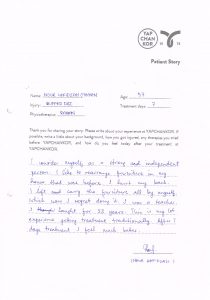 YAP
CHAN
KOR
Patient Story
Name: NOOR HAFIZAH
Age: 57
Injury: SLIPPED DISC
Treatment days: 7
Physiotherapist:
Thank you for sharing your story. Please write about your experience at YAPCHANKOR. If
possible, write a little about your injury, how you got injured, any therapies you tried
before YAPCHANKOR, and how do you feel today after your treatment at
YAPCHANKOR.
I consider myself as a strong and independent
person. I like to rearrange furnitures in my
house that was before I hurt my back.
I left and carry the furniture all by myself
which now I regret doing it. I was a teacher.
I taught for 33 years. This is my 1st
experience getting treatment traditionally. After 7
days treatment I feel much better.